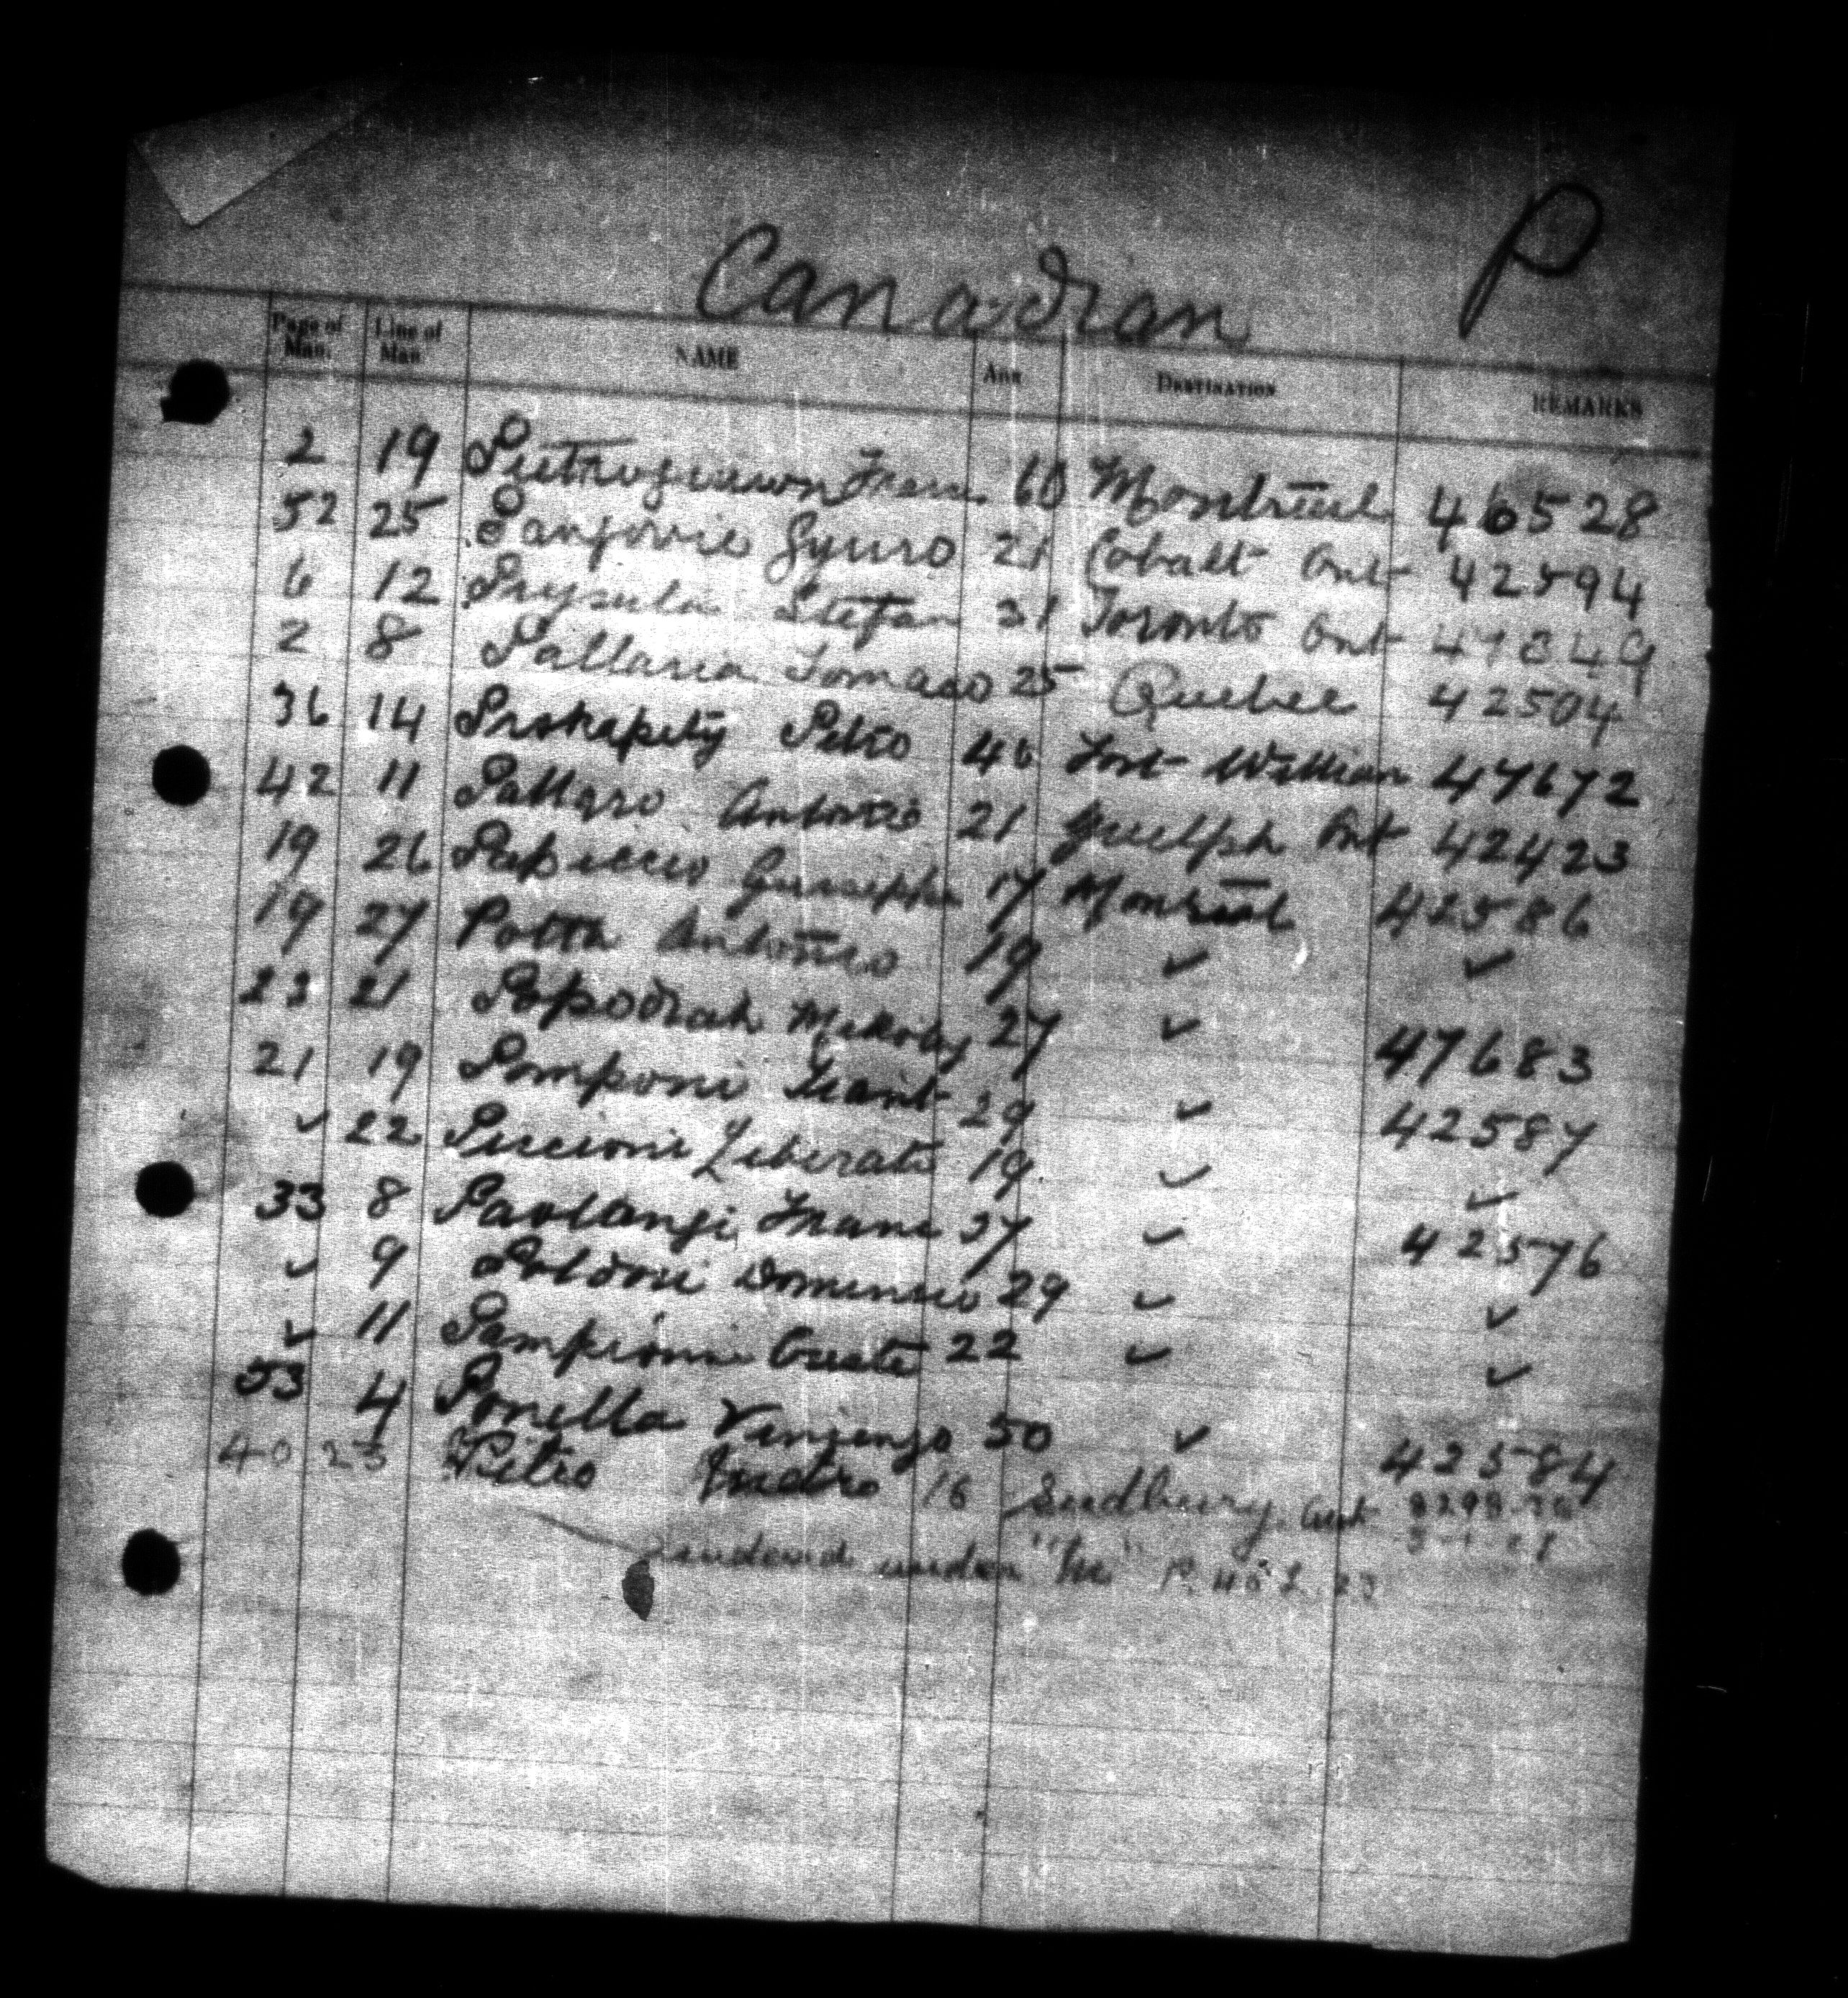 Canadian P
Page of Man. Line of Man. NAME AGE DESTINATION REMARKS
2 19 60 Montreal 46528
52 25 Panjovic Gyuro 21 Cobalt Ont 42594
6 12 Prysula Stefan 31 Toronto Ont 47849
2 8 Pallaria Tomaso 25 Quebec 42504
36 14 Prokapety Petro 46 Fort William 47672
42 11 Pattaro Antonio 21 Guelph Ont 42423
19 26 Papiccio Guiseppe 17 Montreal 42586
19 27 Potta Antonio 19 ✓ ✓
22 21 Popodiah Mikolaj 27 ✓ 47683
21 19 Pomponi 29 ✓ 42587
✓ 22 Puccioni Liberato 19 ✓ ✓
33 8 Paolangi Franc 37 ✓ 42576
✓ 9 Poldoni Domenico 29 ✓ ✓
✓ 11 Pampioni Oreste 22 ✓ ✓
53 4 Ponella Vinjenjo 50 ✓ 42584
40 23 Pietro 16 Sudbury. Ont
under "M"